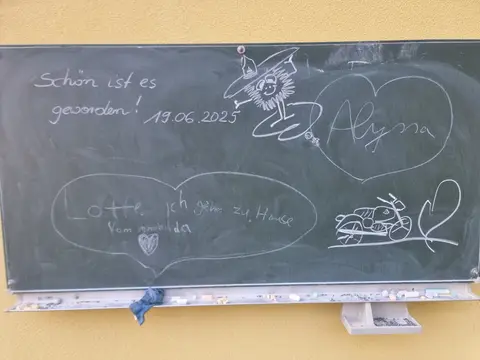 Schön ist es
geworden! 19.06.2025
Alyssa
Lotte ich gehe zu Hause
Vom